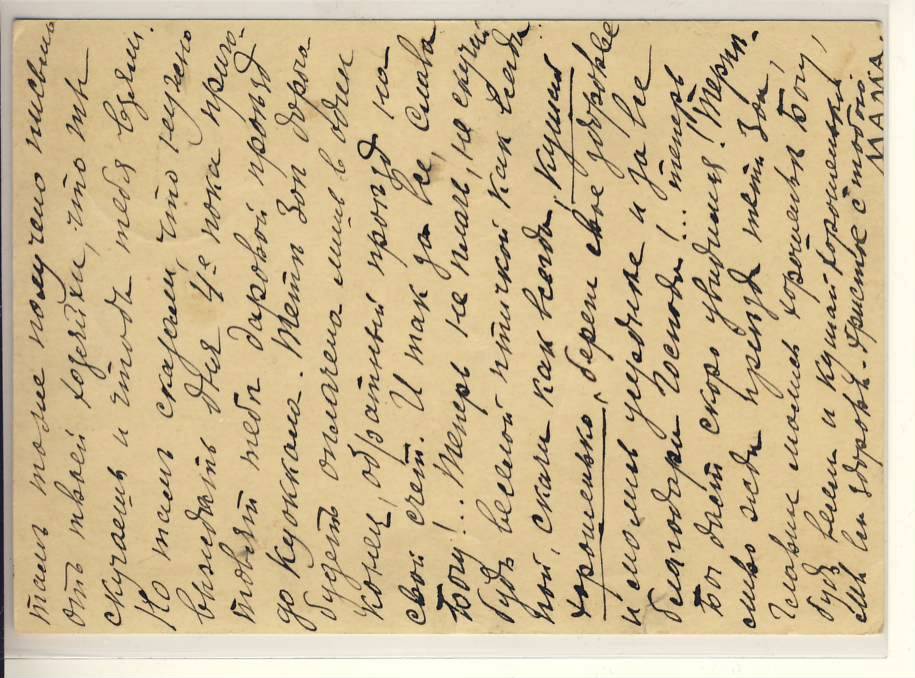 тамъ тоже получено письмо
отъ твоей хозяйки, что ты
скучаешь и чтобъ тебя взяли.
Но тамъ сказали, что нужно
выждать дня 4е пока приго-
товятъ тебѣ даровой проѣздъ
до Куоккала. Тетѣ Зоѣ дорога
будетъ оплачена лишь в одинъ
конец, обратный проѣзд на
свой счет. И так за все слава
Богу!.. Теперь не плачь, не скучай
будь веселой птичкой как всегда
пой, скачи как всегда, кушай
хорошенько, береги свое здоровье
и молись усерднѣе и за все
благодари Господа!.. теперь
Бог дастъ скоро увидимся! Терпи-
сливо жди приѣзда тети Зои,
молись хорошенько Богу,
будь и кушай хорошенько
Христосъ с тобою.
МАМА.